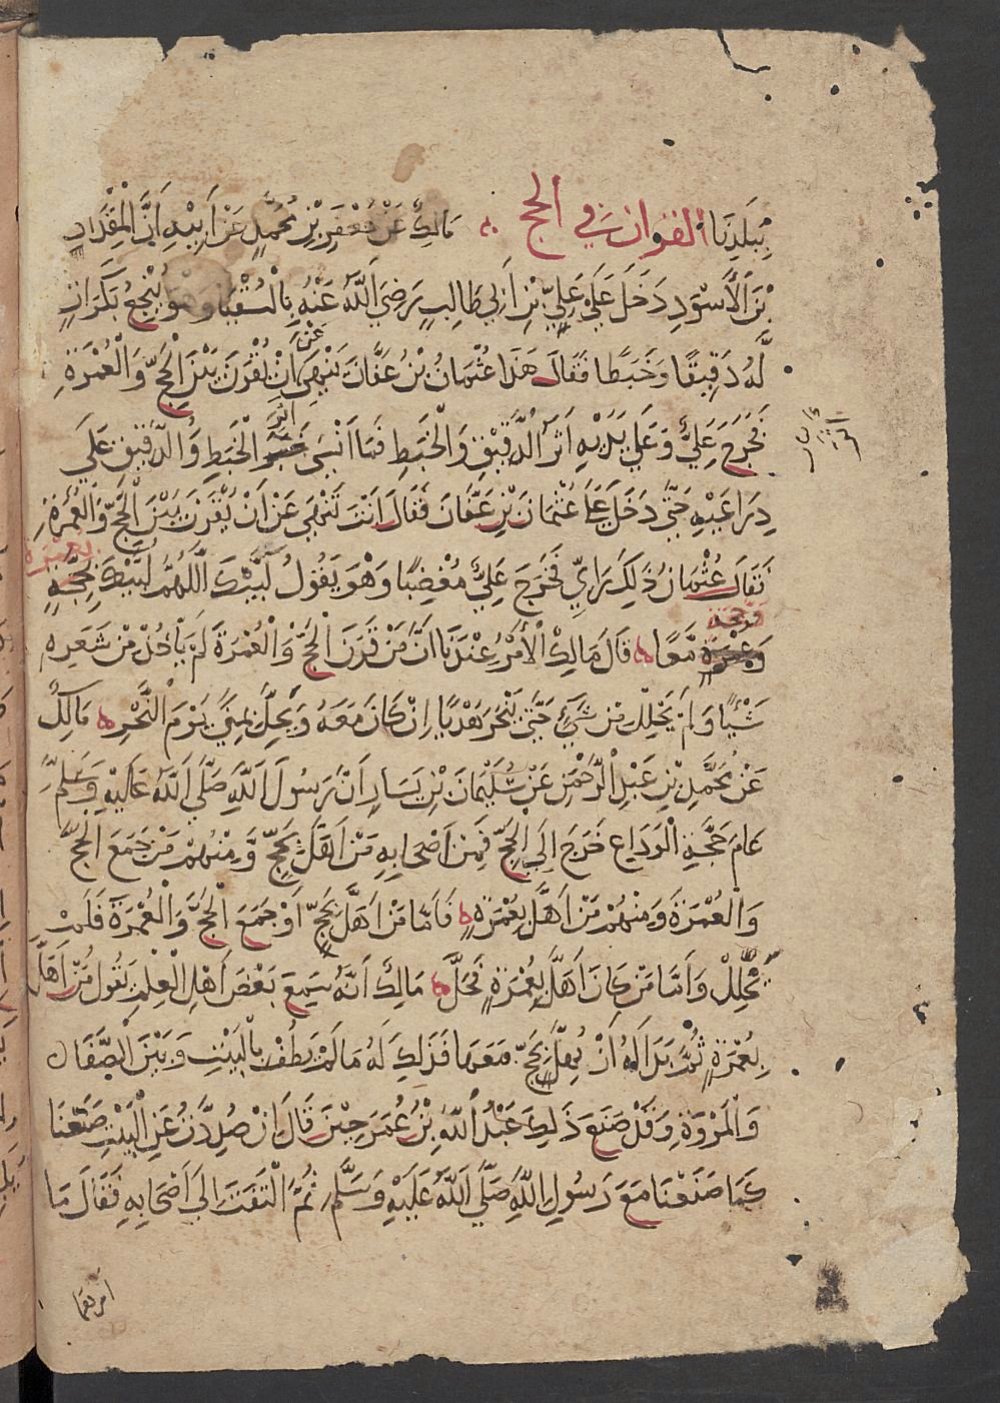 بِبَلَدِنَا القران في الحج مَالِكٌ عَنْ جَعْفَرِ بْنِ مُحَمَّدٍ عَنْ أَبِيْهِ أَنَّ الْمِقْدَادَ
بْنَ الْأَسْوَدِ دَخَلَ عَلَى عَلِيِّ بْنِ أَبِي طَالِبٍ رَضِيَ اللَّهُ عَنْهُ بِالسُّقْيَا وَهُوَ يَنْجَعُ بَكَرَاتٍ
لَّهُ دَقِيقًا وَخَبَطًا فَقَالَ هَذَا عُثْمَانُ بْنُ عَفَّانَ يَنْهَى عَنْ اَنْ يُقْرَنَ بَيْنَ الْحَجِّ وَالْعُمْرَةِ
فَخَرَجَ عَلِيٌّ وَعَلَى يَدَيْهِ أَثَرُ الدَّقِيْقِ وَالْخَبَطِ فَمَا اَنْسَى اثر الْخَبَطِ وَالدَّقِيقِ عَلَى
ذِرَاعَيْهِ حَتَّى دَخَلَ عَلَى عُثْمَانَ بْنِ عَفَّانَ فَقَالَ اَنْتَ تَنْهَى عَنْ اَنْ يُقْرَنَ بَيْنَ الْحَجِّ وَالْعُمْرَةِ
فَقَالَ عُثْمَانُ ذَلِكَ رَايِي فَخَرَجَ عَلِيٌّ مُغْضَبًا وَهْوَ يَقُولُ لَبَّيْكَ اللَّهُمَّ لَبَّيْكَ بِحَجَّةٍ بعمرة
وَعُمْرَةٍ وحجة مَّعًا قَالَ مَالِكٌ الْاَمْرُ عِنْدَنَا اَنَّ مَنْ قَرَنَ الْحَجَّ وَالْعُمْرَةَ لَمْ يَاْخُذْ مِنْ شَعَرِهِ
شَيْئًا وَلَمْ يَحْلِلْ مِنْ شَيْءٍ حَتَّى يَنْحَرَ هَدْيًا اِنْ كَانَ مَعَهُ وَيَحِلَّ بِمِنًى يَوْمَ النَّحْرِ مَالِكٌ
عَنْ مُحَمَّدِ بْنِ عَبْدِ الرَّحْمَنِ عَنْ سُلَيْمَانَ بْنِ يَسَارٍ اَنَّ رَسُولَ اللَّهِ صَلَّى اللَّهُ عَلَيْهِ وَسَلَّمَ
عَامَ حَجَّةِ الْوَدَاعِ خَرَجَ إِلَى الْحَجِّ فَمِنْ اَصْحَابِهِ مَنْ اَهَلَّ بِحَجٍّ وَمِنْهُمْ مَنْ جَمَعَ الْحَجَّ
وَالْعُمْرَةَ وَمِنْهُمْ مَنْ اَهَلَّ بِعُمْرَةٍ فَاَمَّا مَنْ اَهَلَّ بِحَجٍّ اَوْ جَمَعَ الْحَجَّ وَالْعُمْرَةَ فَلَمْ
يَحْلِلْ وَاَمَّا مَنْ كَانَ اَهَلَّ بِعُمْرَةٍ فَحَلَّ مَالِكٌ اَنَّهُ سَمِعَ بَعْضَ اَهْلِ الْعِلْمِ يَقُولُ مَنْ اَهَلَّ
بِعُمْرَةٍ ثُمَّ بَدَا لَهُ اَنْ يُهِلَّ بِحَجٍّ مَعَهَا فَذَلِكَ لَهُ مَا لَمْ يَطُفْ بِالْبَيْتِ وَبَيْنَ الصَّفَا
وَالْمَرْوَةِ وَقَدْ صَنَعَ ذَلِكَ عَبْدُ اللَّهِ بْنُ عُمَرَ حِيْنَ قَالَ اِنْ صُدِدْتُ عَنِ الْبَيْتِ صَنَعْنَا
كَمَا صَنَعْنَا مَعَ رَسُولِ اللَّهِ صَلَّى اللَّهُ عَلَيْهِ وَسَلَّمَ ثُمَّ الْتَفَتَ اِلَى اَصْحَابِهِ فَقَالَ مَا
امرهما